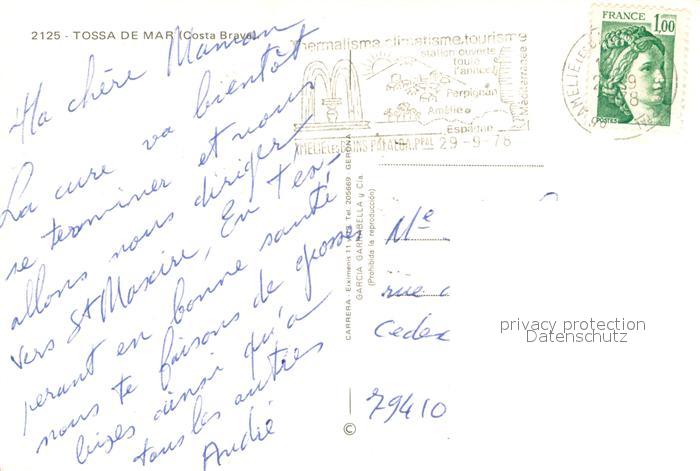 2125 - TOSSA DE MAR (Costa Brava)
Ma chère Maman
La cure va bientôt
se terminer et nous
allons nous diriger
vers St Maxire, En Tes-
perant en bonne santé
nous te faisons de grosses
bizes ainsi qu'a
tous les autres
André
thermalisme.climatisme.tourisme
station ouverte
toute
l'année
Perpignan
Amélie
Espagne
Méditerranée
AMELIE LES BAINS-PALALDA.PPAL 29-9-78
FRANCE 1,00
POSTES
CARRERA - Eiximenis 11 Tel. 205669 GERONA
GARCIA GARRABELLA y Cía.
(Prohibida la reproducción)
©
Me
rue
Cedex
79410
privacy protection
Datenschutz